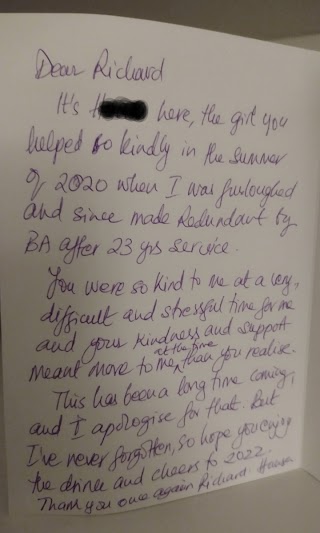 Dear Richard
It's H here, the girl you
helped so kindly in the summer
of 2020 when I was furloughed
and since made Redundant by
BA after 23 yrs service.
You were so kind to me at a very,
difficult and stressful time for me
and your kindness and support
meant more to me at the time than you realise.
This has been a long time coming,
and I apologise for that. But
I've never forgotten, so hope you enjoy
the drink and cheers to 2022.
Thank you once again Richard.